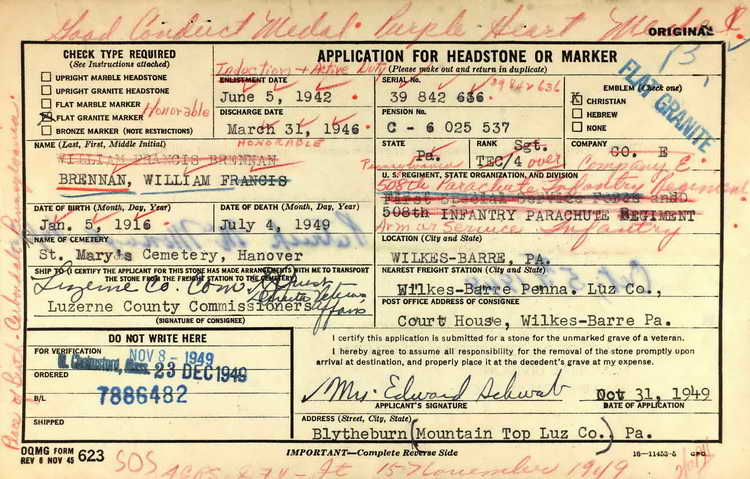 Good Conduct Medal - Purple Heart Medal
ORIGINAL
13
CHECK TYPE REQUIRED
(See Instructions attached)
UPRIGHT MARBLE HEADSTONE
UPRIGHT GRANITE HEADSTONE
FLAT MARBLE MARKER
FLAT GRANITE MARKER
BRONZE MARKER (NOTE RESTRICTIONS)
Honorable
APPLICATION FOR HEADSTONE OR MARKER
(Please make out and return in duplicate)
Induction + Active Duty
ENLISTMENT DATE
June 5, 1942
DISCHARGE DATE
March 31, 1946
HONORABLE
SERIAL No.
39 842 636
39 842 636
PENSION No.
C - 6 025 537
EMBLEM (Check one)
X CHRISTIAN
HEBREW
NONE
FLAT GRANITE
NAME (Last, First, Middle Initial)
WILLIAM FRANCIS BRENNAN
BRENNAN, WILLIAM FRANCIS
STATE
Pa.
Pennsylvania
RANK
Sgt.
TEC/4 over
COMPANY
CO. E
Company E
U. S. REGIMENT, STATE ORGANIZATION, AND DIVISION
508th Parachute Infantry Regiment
First Special Service Force and
508th INFANTRY PARACHUTE REGIMENT
Arm or Service Infantry
DATE OF BIRTH (Month, Day, Year)
Jan. 5, 1916
DATE OF DEATH (Month, Day, Year)
July 4, 1949
NAME OF CEMETERY
St. Mary's Cemetery, Hanover
LOCATION (City and State)
WILKES-BARRE, PA.
SHIP TO (I CERTIFY THE APPLICANT FOR THIS STONE HAS MADE ARRANGEMENTS WITH ME TO TRANSPORT
THE STONE FROM THE FREIGHT STATION TO THE CEMETERY)
Luzerne Co. Com
Affairs
Luzerne County Commissioners
(SIGNATURE OF CONSIGNEE)
NEAREST FREIGHT STATION (City and State)
Wilkes-Barre Penna. Luz Co.,
POST OFFICE ADDRESS OF CONSIGNEE
Court House, Wilkes-Barre Pa.
DO NOT WRITE HERE
FOR VERIFICATION
NOV 8 - 1949
ORDERED
23 DEC 1949
B/L
7886482
SHIPPED
I certify this application is submitted for a stone for the unmarked grave of a veteran.
I hereby agree to assume all responsibility for the removal of the stone promptly upon
arrival at destination, and properly place it at the decedent's grave at my expense.
Mrs. Edward Schwab
APPLICANT'S SIGNATURE
Oct 31, 1949
DATE OF APPLICATION
ADDRESS (Street, City, State)
Blytheburn (Mountain Top Luz Co.) Pa.
OQMG FORM
REV 8 NOV 45
623
IMPORTANT—Complete Reverse Side
16—11453-5 GPO
SOS
15 November 1949